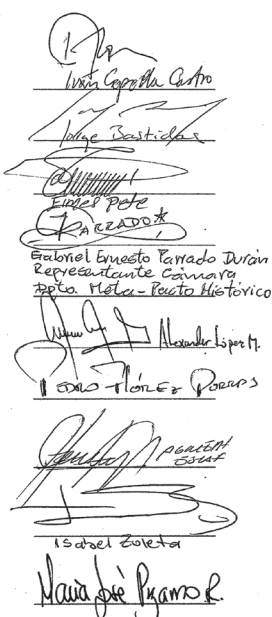 Iván Cepeda Castro
Jorge Bastidas
Ermes Pete
PARRADO
Gabriel Ernesto Parrado Durán
Representante Cámara
Dpto. Meta - Pacto Histórico
Alexander López M.
PEDRO FLÓREZ PORRAS
Isabel Zuleta
María José Pizarro R.